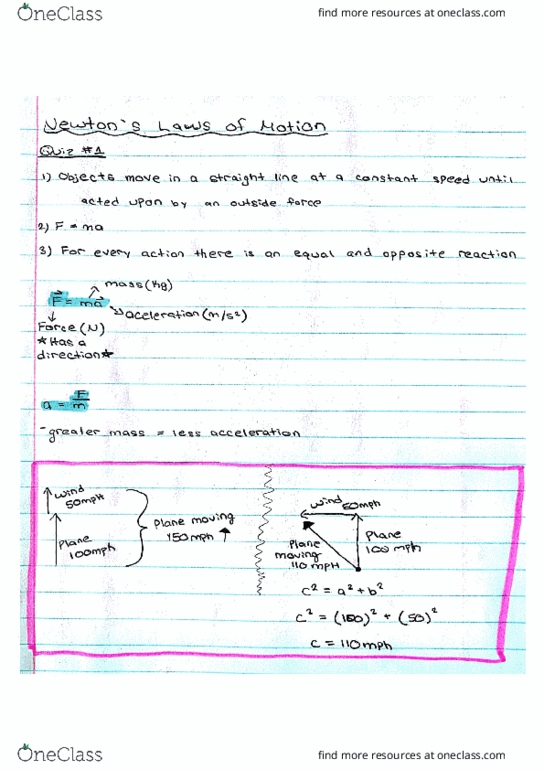 OneClass
find more resources at oneclass.com
Newton's Laws of Motion
Quiz #1
1) Objects move in a straight line at a constant speed until
acted upon by an outside force
2) F = ma
3) For every action there is an equal and opposite reaction
mass (kg)
F = ma
aceleration (m/s²)
Force (N)
*Has a
direction*
a = F/m
-greater mass = less acceleration
wind
50mph
Plane
100mph
Plane moving
150mph ↑
wind 50mph
Plane
100 mph
Plane
moving
110 mph
c² = a² + b²
c² = (100)² + (50)²
c = 110 mph
OneClass
find more resources at oneclass.com